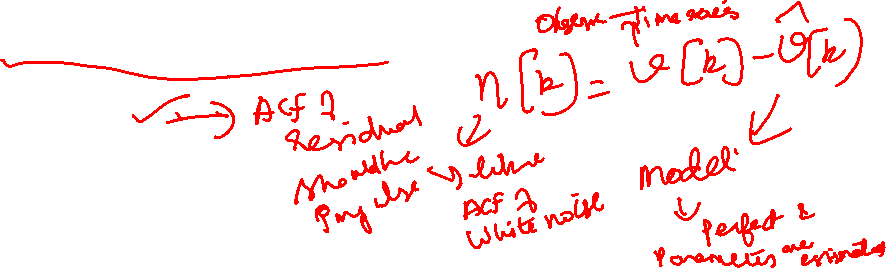 Observe Time series
η[k] = v[k] - v̂[k]
ACF of
residual
should be
impulse
like
ACF of
White noise
Model
Perfect &
Parameters are estimated